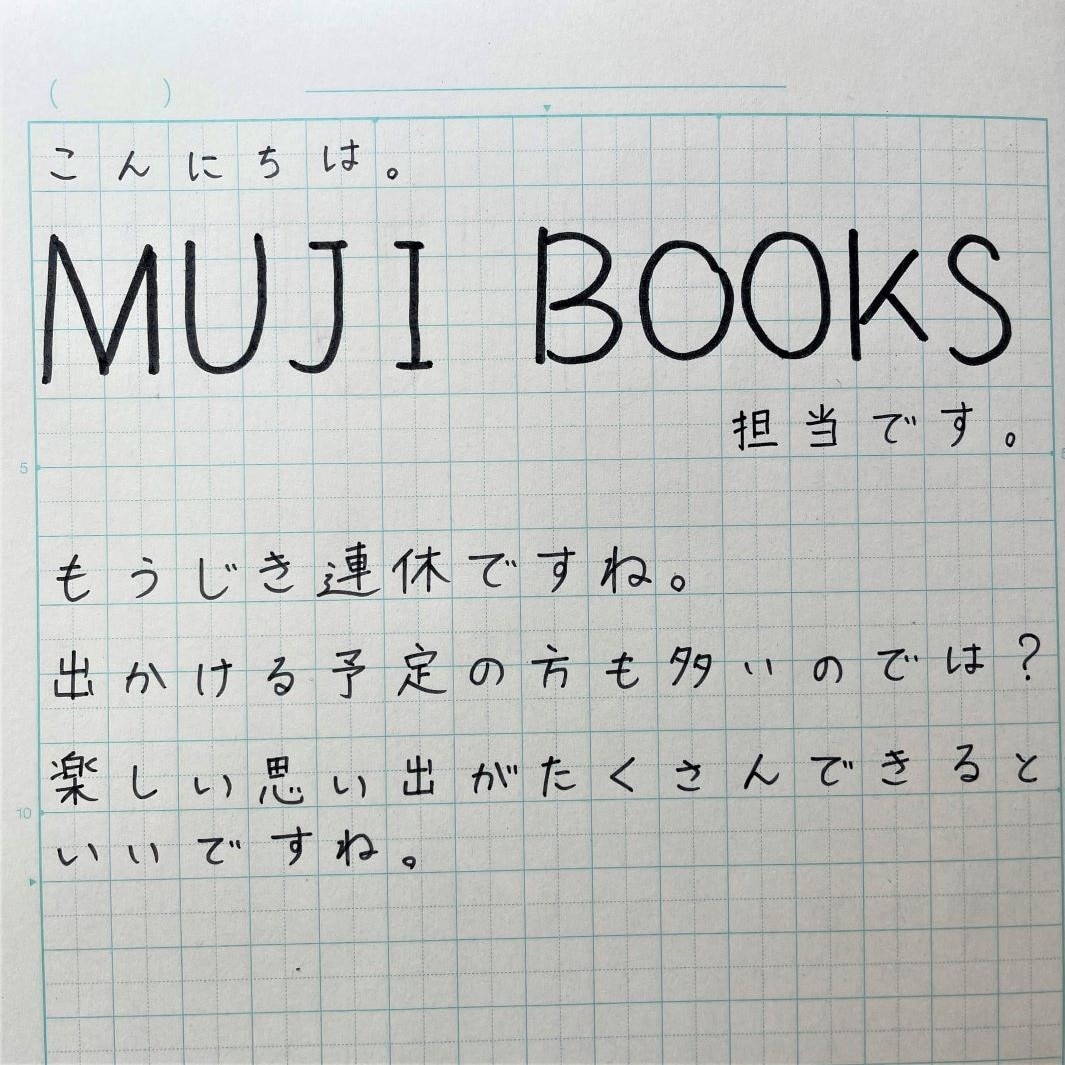 (        )
こんにちは。
MUJI BOOKS
担当です。
5
もうじき連休ですね。
出かける予定の方も多いのでは？
楽しい思い出がたくさんできると
10
いいですね。